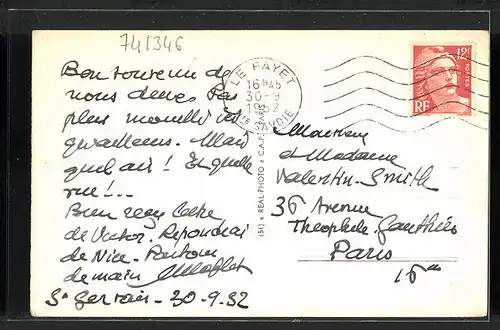 741346
Bon souvenir de
nous deux. Pas
plus mouillés
qu'ailleurs. Mais
quel air! Et quelle
vue!...
Bien reçu lettre
de Victor. Répondrai
de Nice. Partons
demain
St Gervais - 30-9-52
LE FAYET
16 H 45
30-9
1952
HTE SAVOIE
12F
POSTES
RF
(51) « REAL-PHOTO » C.A.P. PARIS
Monsieur
et Madame
Valentin-Smith
36 Avenue
Théophile Gauthier
Paris
16e